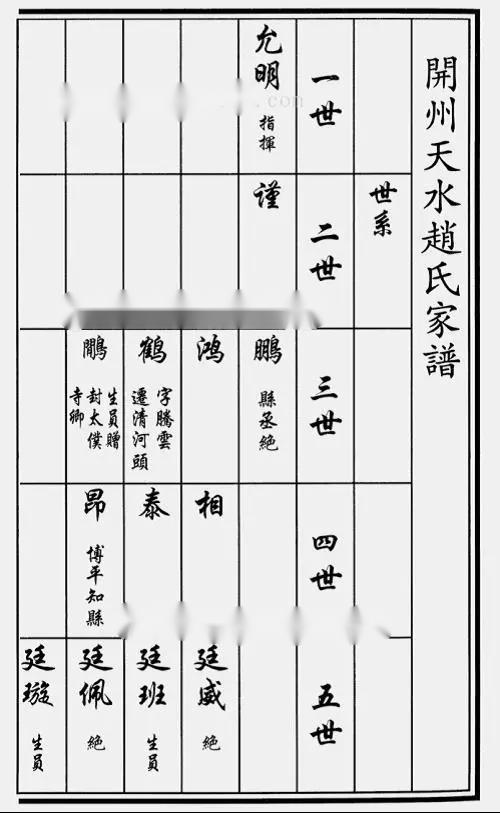 開州天水趙氏家譜
世系
一世
允明
指揮
二世
謹
三世
鵬
縣丞絕
鴻
鶴
字騰雲
遷清河頭
鷴
生員贈
封太僕
寺卿
四世
相
泰
昂
博平知縣
五世
廷威
絕
廷班
生員
廷佩
絕
廷璇
生員